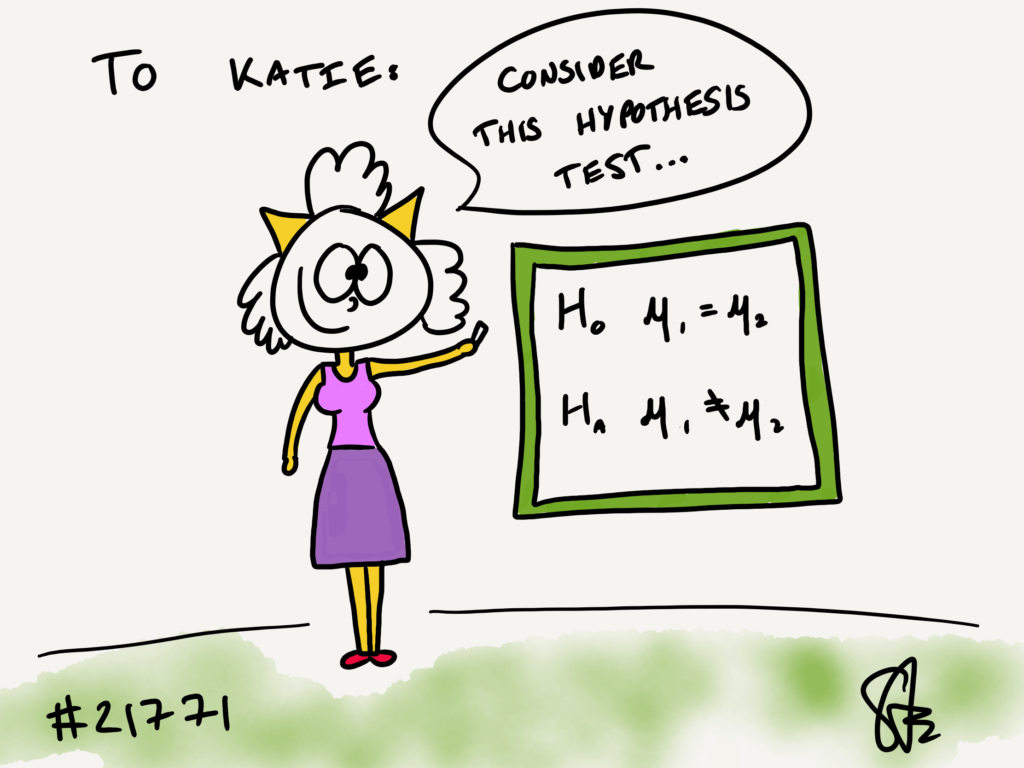 TO KATIE:
CONSIDER
THIS HYPOTHESIS
TEST...
H₀ μ₁ = μ₂
Hₐ μ₁ ≠ μ₂
#21771